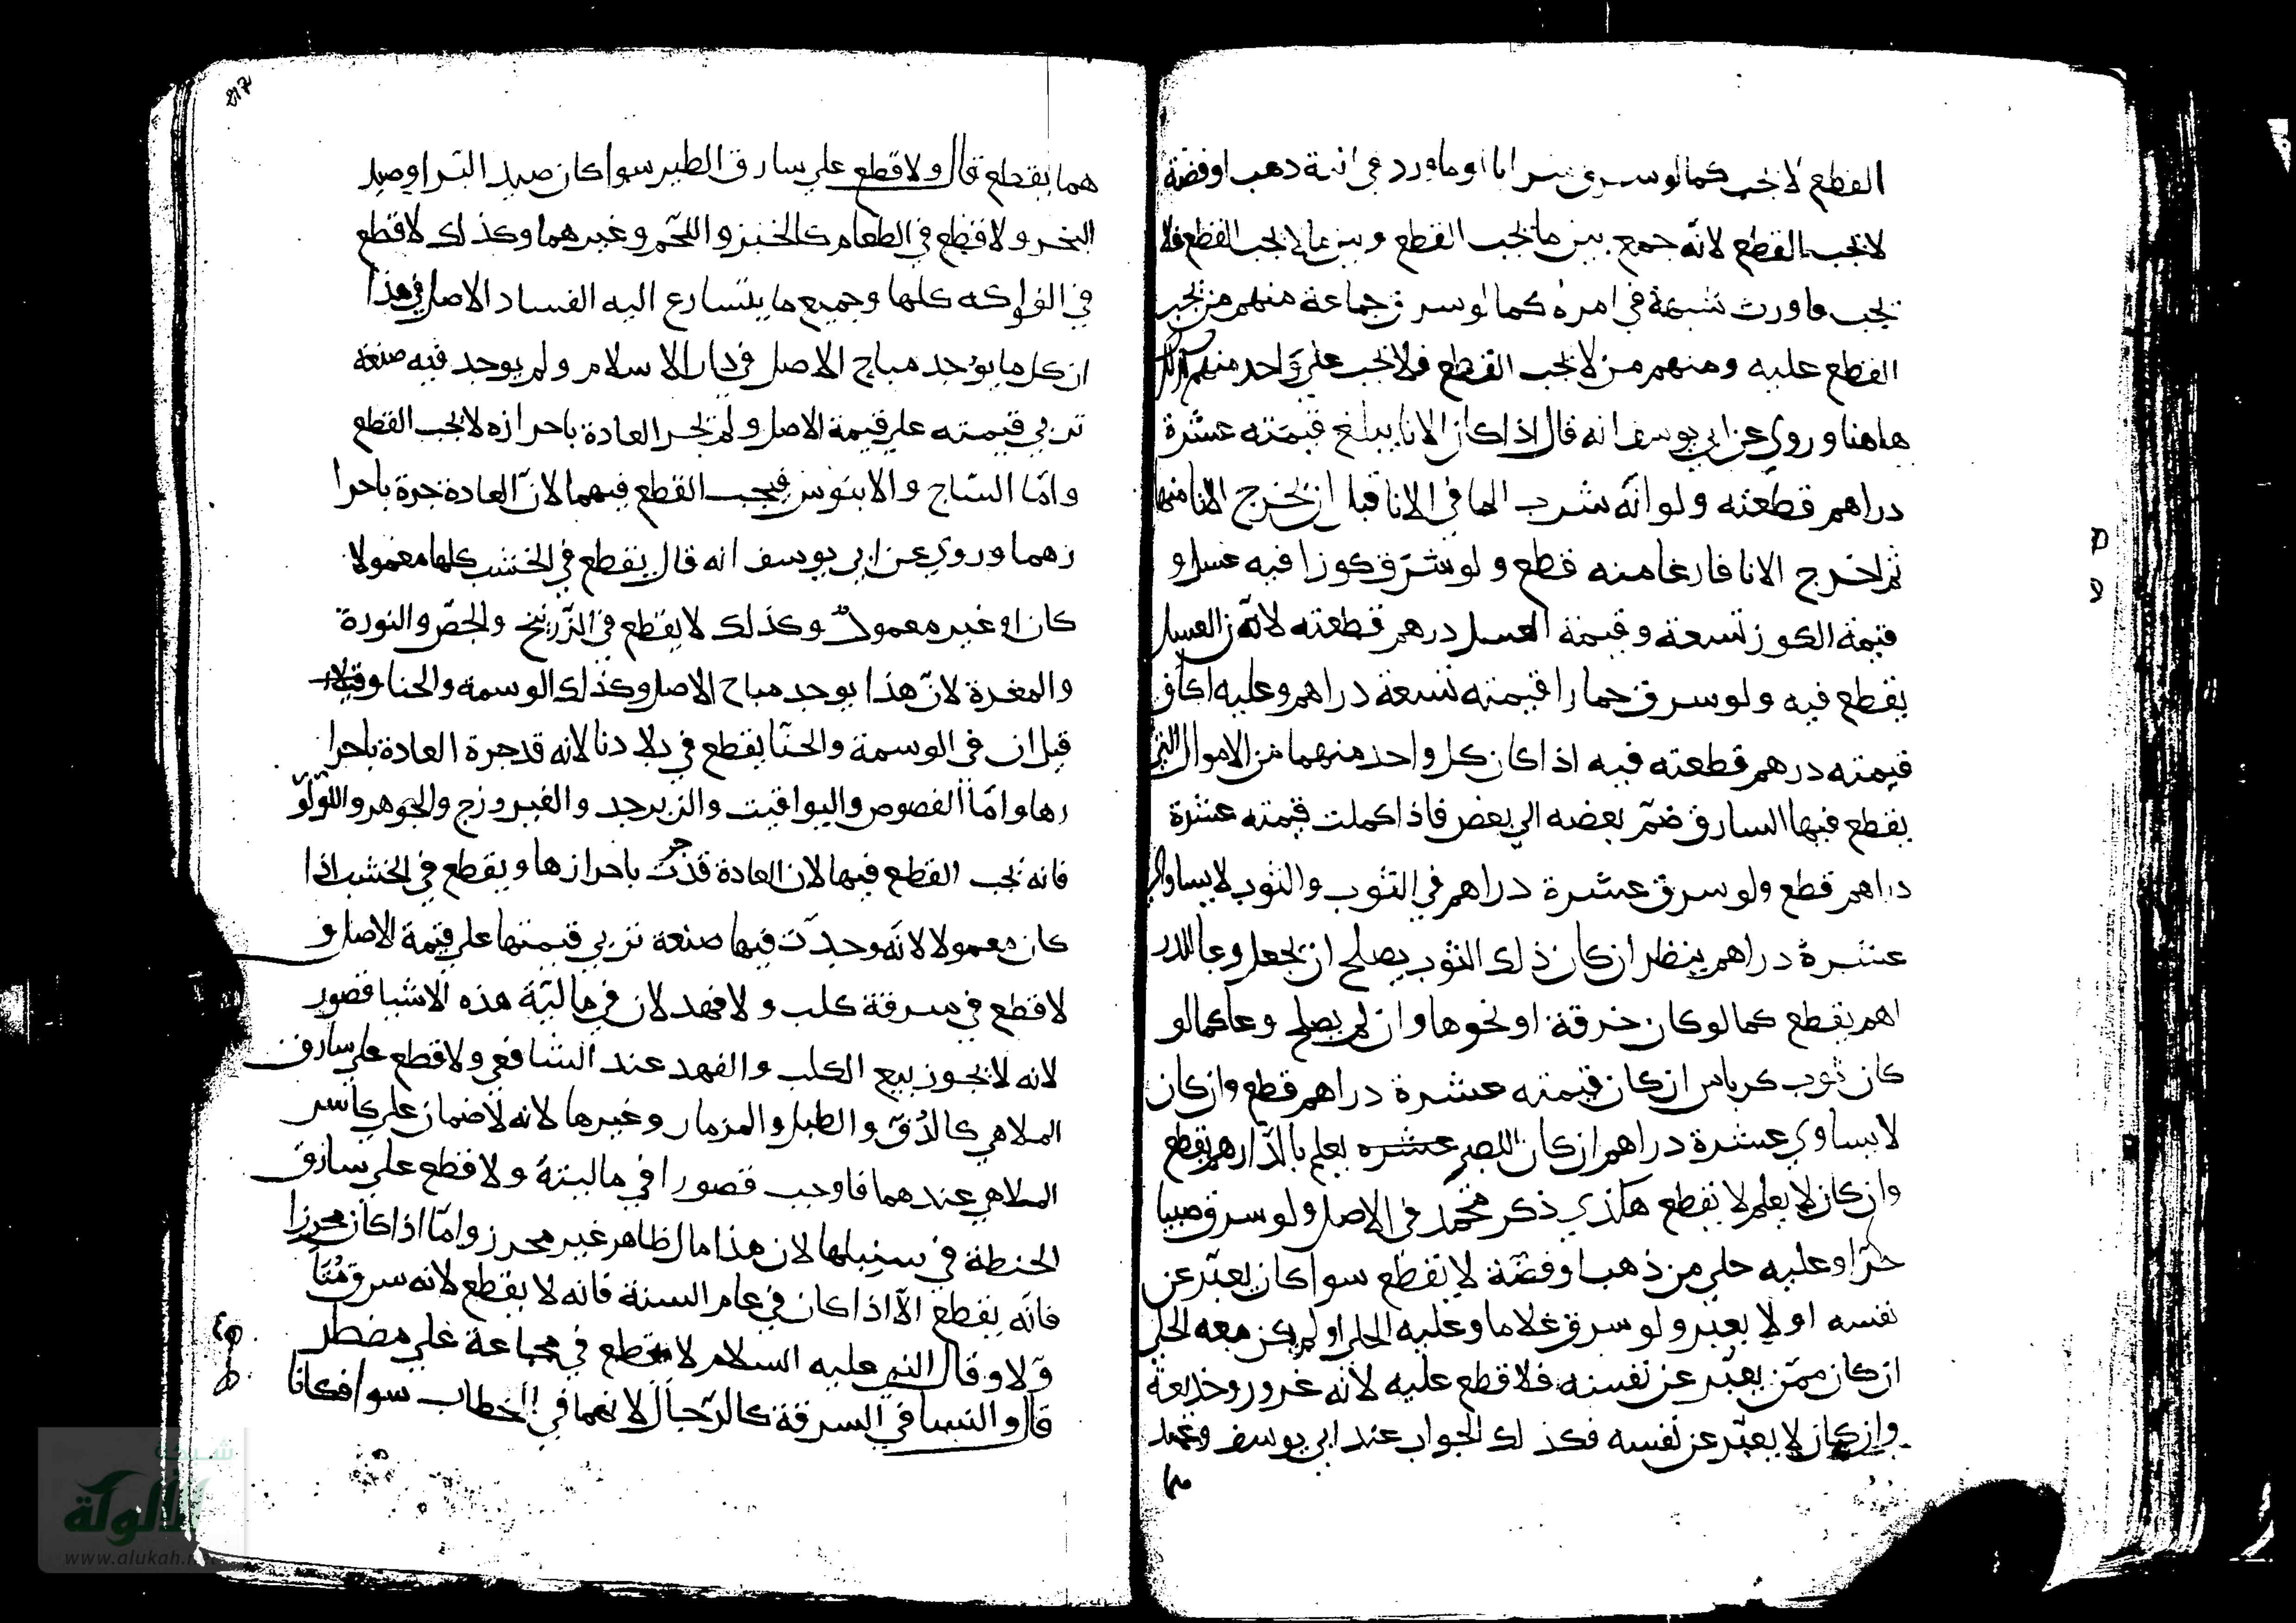 القطع لا يجب كما لو سرق شرابا او ماورد في انية دهب او فضة
لا يجب القطع لانّه جمع بين ما يجب القطع وبين ما لا يجب القطع فلا
يجب فاورث شبهة في امره كما لو سرق جماعة منهم من يجب
القطع عليه ومنهم من لا يجب القطع فلا يجب على واحد منهم كذلك
هاهنا وروي عن ابي يوسف انه قال اذا كان الانا يبلغ قيمته عشرة
دراهم قطعته ولو انّه شرب الما في الانا قبل ان يخرج الانا منها
ثم اخرج الانا فارغا منه قطع ولو سرق كوزا فيه عسل و
قيمة الكوز تسعة وقيمة العسل درهم قطعته لانّ العسل
يقطع فيه ولو سرق حمارا قيمته تسعة دراهم وعليه اكاف
قيمته درهم قطعته فيه اذا كان كل واحد منهما من الاموال التي
يقطع فيها السارق ضمّ بعضه الي بعض فاذا كملت قيمته عشرة
دراهم قطع ولو سرق عشرة دراهم في الثوب والثوب لا يساوي
عشرة دراهم ينظر ان كان ذلك الثوب يصلح ان يجعل وعا للدر
اهم يقطع كما لو كان خرقة او نحوها وان لم يصلح وعا كما لو
كان ثوب كرباس ان كان قيمته عشرة دراهم قطع وان كان
لا يساوي عشرة دراهم ان كان اللص يعلم بالدّراهم يقطع
وان كان لا يعلم لا يقطع هكذي ذكر محمد في الاصل ولو سرق صبيا
حرّا وعليه حلي من ذهب او فضّة لا يقطع سوا كان يعبّر عن
نفسه او لا يعبّر ولو سرق غلاما وعليه الحلي او لم يكن معه الحلي
ان كان ممّن يعبّر عن نفسه فلا قطع عليه لانّه غرور وخديعة
وان كان لا يعبّر عن نفسه فكذلك الجواب عند ابي يوسف وعند
217
هما يقطع قال ولا قطع علي سارق الطير سوا كان صيد البّر او صيد
البحر ولا قطع في الطعام كالخبز واللحم وغيرهما وكذلك لا قطع
في الفواكه كلها وجميع ما يتسارع اليه الفساد الاصل في هذا
ان كل ما يوجد مباح الاصل في دار الاسلام ولم يوجد فيه صنعة
تربي قيمته علي قيمة الاصل ولم يجر العادة باحرازه لا يجب القطع
وامّا السّاج والابنوس فيجب القطع فيهما لانّ العادة جرة باحرا
زهما وروي عن ابي يوسف انه قال يقطع في الخشب كلها معمولا
كان او غير معمول وكذلك لا يقطع في الزّرنيخ والجصّ والنورة
والمغرة لانّ هذا يوجد مباح الاصل وكذلك الوسمة والحنا
قيل ان في الوسمة والحنّا يقطع في بلادنا لانه قد جرة العادة باحرا
زها وامّا الفصوص واليواقيت والزبرجد والفيروزج والجوهر واللولو
فانه يجب القطع فيها لان العادة قد جرت باحرازها ويقطع في الخشب اذا
كان معمولا لانّه وجدت فيها صنعة تربي قيمتها علي قيمة الاصل و
لا قطع في سرقة كلب ولا فهد لان في ماليّة هذه الاشيا قصور
لانه لا يجوز بيع الكلب والفهد عند الشافعي ولا قطع علي سارق
الملاهي كالدّف والطبل والمزمار وغيرها لانه لا ضمان علي كاسر
الملاهي عندهما فاوجب قصورا في ماليتة ولا قطع علي سارق
الحنطة في سنبلها لان هذا مال ظاهر غير محرز وامّا اذا كان محرزا
فانّه يقطع الّا اذا كان في عام السنة فانه لا يقطع لانه سرق
وقال النبي عليه السلام لا يقطع في مجاعة علي مضطر
قال والنسا في السرقة كالرّجال لانهما في الخطاب سوا فكانا
شبكة
الألوكة
www.alukah.net